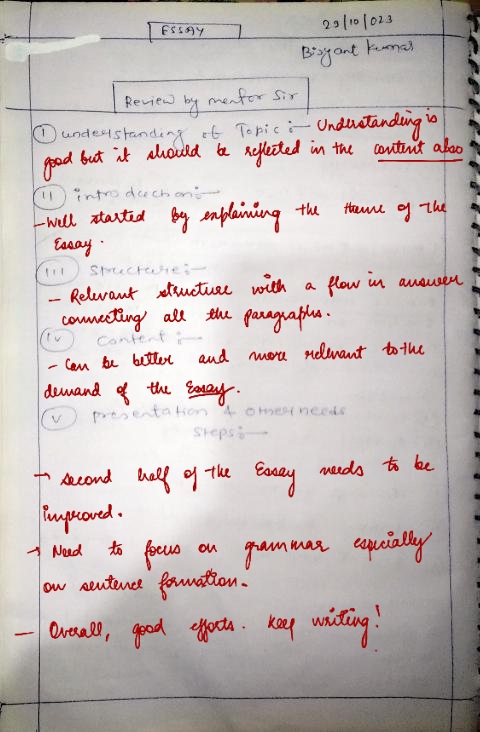 ESSAY
29/10/023
Kumar
Review by mentor Sir
I understanding of Topic :- Understanding is
good but it should be reflected in the content also
II introduction :-
- Well started by explaining the theme of the
Essay.
III Structure :-
- Relevant structure with a flow in answer
connecting all the paragraphs.
IV Content :-
- Can be better and more relevant to the
demand of the Essay.
V presentation & other needs
steps :-
→ second half of the Essay needs to be
improved.
→ Need to focus on grammar especially
on sentence formation.
- Overall, good efforts. Keep writing!